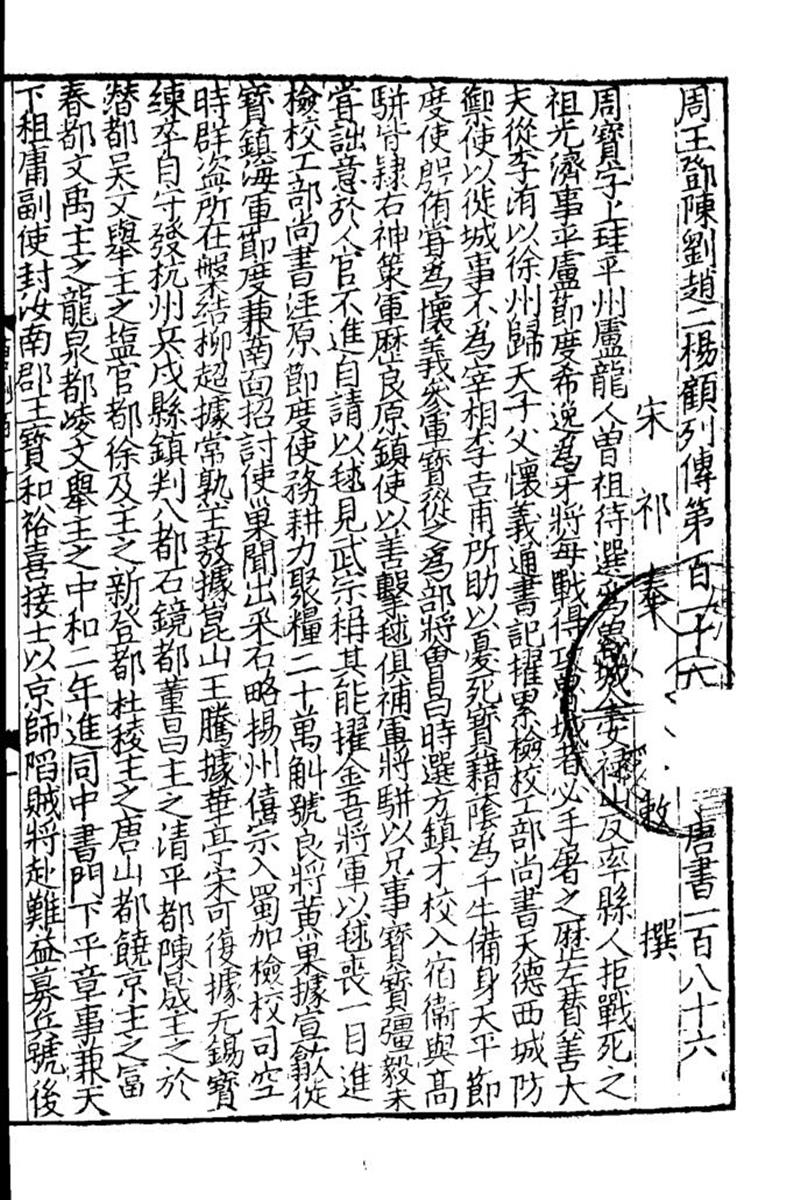 周王鄧陳劉趙二楊顧列傳第百一十六 唐書一百八十六
宋祁奉 敕撰
周寶字上珪平州盧龍人曾祖待選為魯城令安祿山反率縣人拒戰死之
祖光濟事平盧節度希逸為牙將每戰得攻魯城者必手屠之歷左贊善大
夫從李洧以徐州歸天子父懷義通書記擢累檢校工部尚書天德西城防
禦使以徙城事不為宰相李吉甫所助以憂死寶藉蔭為千牛備身天平節
度使殷侑嘗為懷義參軍寶從之為部將會昌時選方鎮才校入宿衛與高
駢皆隸右神策軍歷良原鎮使以善擊毬俱補軍將駢以兄事寶寶彊毅未
嘗詘意於人官不進自請以毬見武宗稱其能擢金吾將軍以毬喪一目進
檢校工部尚書涇原節度使務耕力聚糧二十萬斛號良將黃巢據宣歙徙
寶鎮海軍節度兼南面招討使巢聞出采石略揚州僖宗入蜀加檢校司空
時群盜所在槃結柳超據常熟王敖據崑山王騰據華亭宋可復據无錫寶
練卒自守發杭州兵戍縣鎮判八都石鏡都董昌主之清平都陳晟主之於
潛都吳文舉主之塩官都徐及主之新登都杜稜主之唐山都饒京主之富
春都文禹主之龍泉都凌文舉主之中和二年進同中書門下平章事兼天
下租庸副使封汝南郡王寶和裕喜接士以京師陷賊將赴難益募兵號後